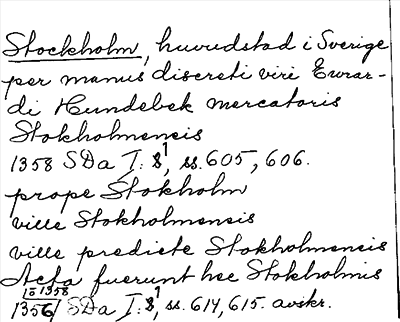 Stockholm, huvudstad i Sverige
per manus discreti viri Evrar-
di Hundebek mercatoris
Stokholmensis
1358 SDa I: 1, ss. 605, 606.
prope Stokholm
ville Stokholmensis
ville predicte Stokholmensis
Acta fuerunt hec Stokholmis
1358
1356/ SDa I: 1, ss. 614, 615. avskr.